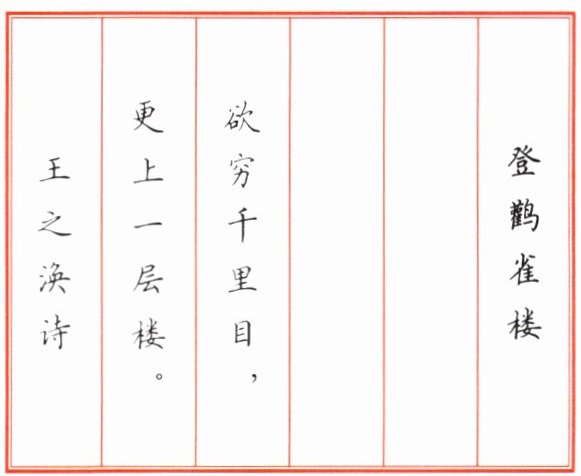 登鹳雀楼
欲穷千里目，
更上一层楼。
王之涣诗